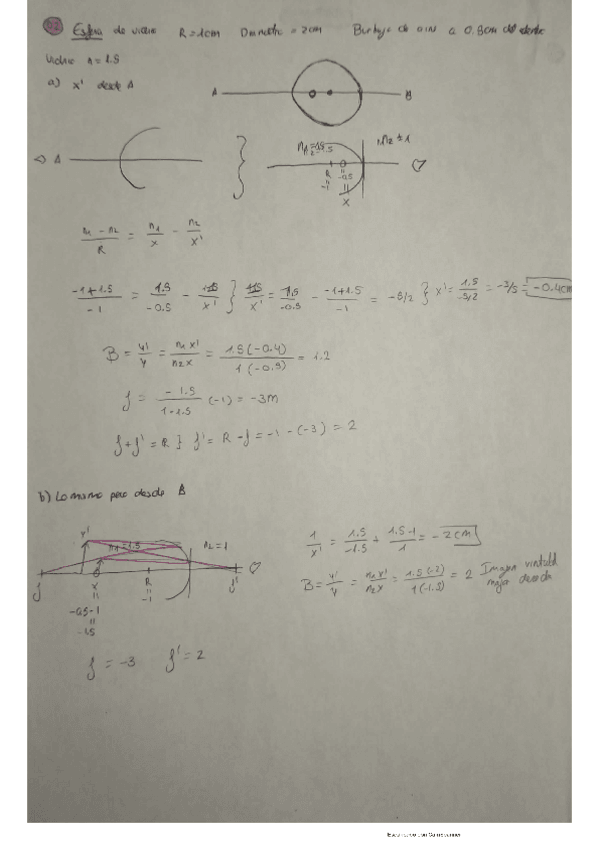 Esfera de vidrio R=1cm Diametro = 2cm Burbuja de aire a 0.5cm del centro
Vidrio n=1.5
a) x' desde A
A B
A n1=1.5 n2=1
R -0.5
-1 x
(n1 - n2)/R = n1/x - n2/x'
(-1+1.5)/-1 = 1.5/-0.5 - /x' } /x' = 1.5/-0.5 - (-1+1.5)/-1 = -5/2 } x' = 1.5/-5/2 = -3/5 = -0.4cm
B = y'/y = n1 x'/n2 x = 1.5(-0.4)/1(-0.5) = 1.2
f = -1.5/(1-1.5) (-1) = -3m
f+f' = R } f' = R-f = -1-(-3) = 2
b) Lo mismo pero desde B
y' n1=1.5 n2=1
f x R f'
-1
-0.5-1
-1.5
1/x' = 1.5/-1.5 + (1.5-1)/1 = -2cm
B = y'/y = n1 x'/n2 x = 1.5(-2)/1(-1.5) = 2 Imagen virtual
mayor derecha
f = -3 f' = 2
Escaneado con CamScanner